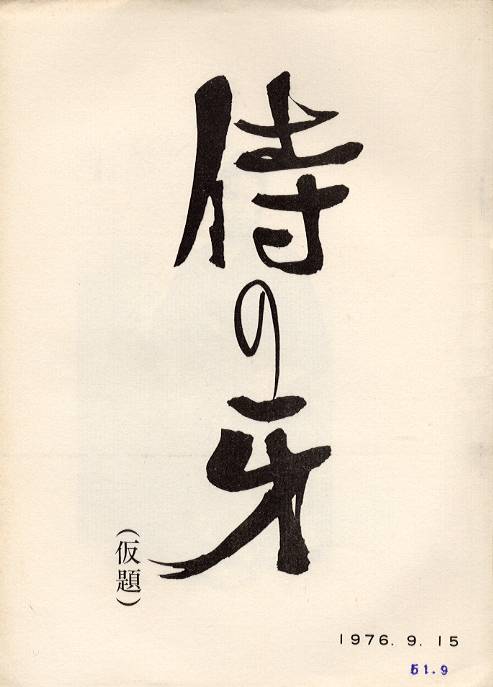 侍の牙
（仮題）
1976. 9. 15
51.9